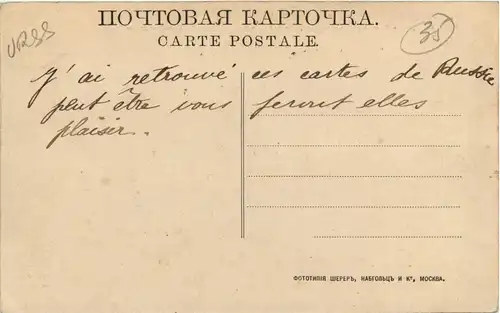 ПОЧТОВАЯ КАРТОЧКА.
CARTE POSTALE.
URSS
35
J'ai retrouvé ces cartes de Russie
peut être vous feront elles
plaisir..
ФОТОТИПІЯ ШЕРЕРЪ, НАБГОЛЬЦЪ И К°, МОСКВА.